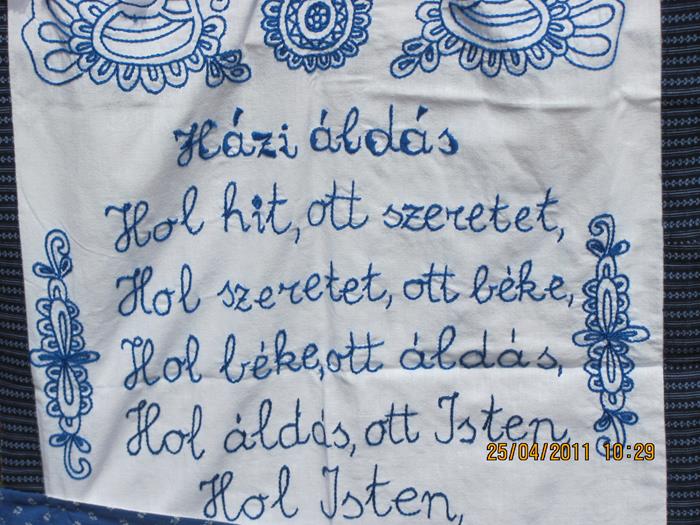 Házi áldás
Hol hit, ott szeretet,
Hol szeretet, ott béke,
Hol béke, ott áldás,
Hol áldás, ott Isten,
Hol Isten,
25/04/2011 10:29